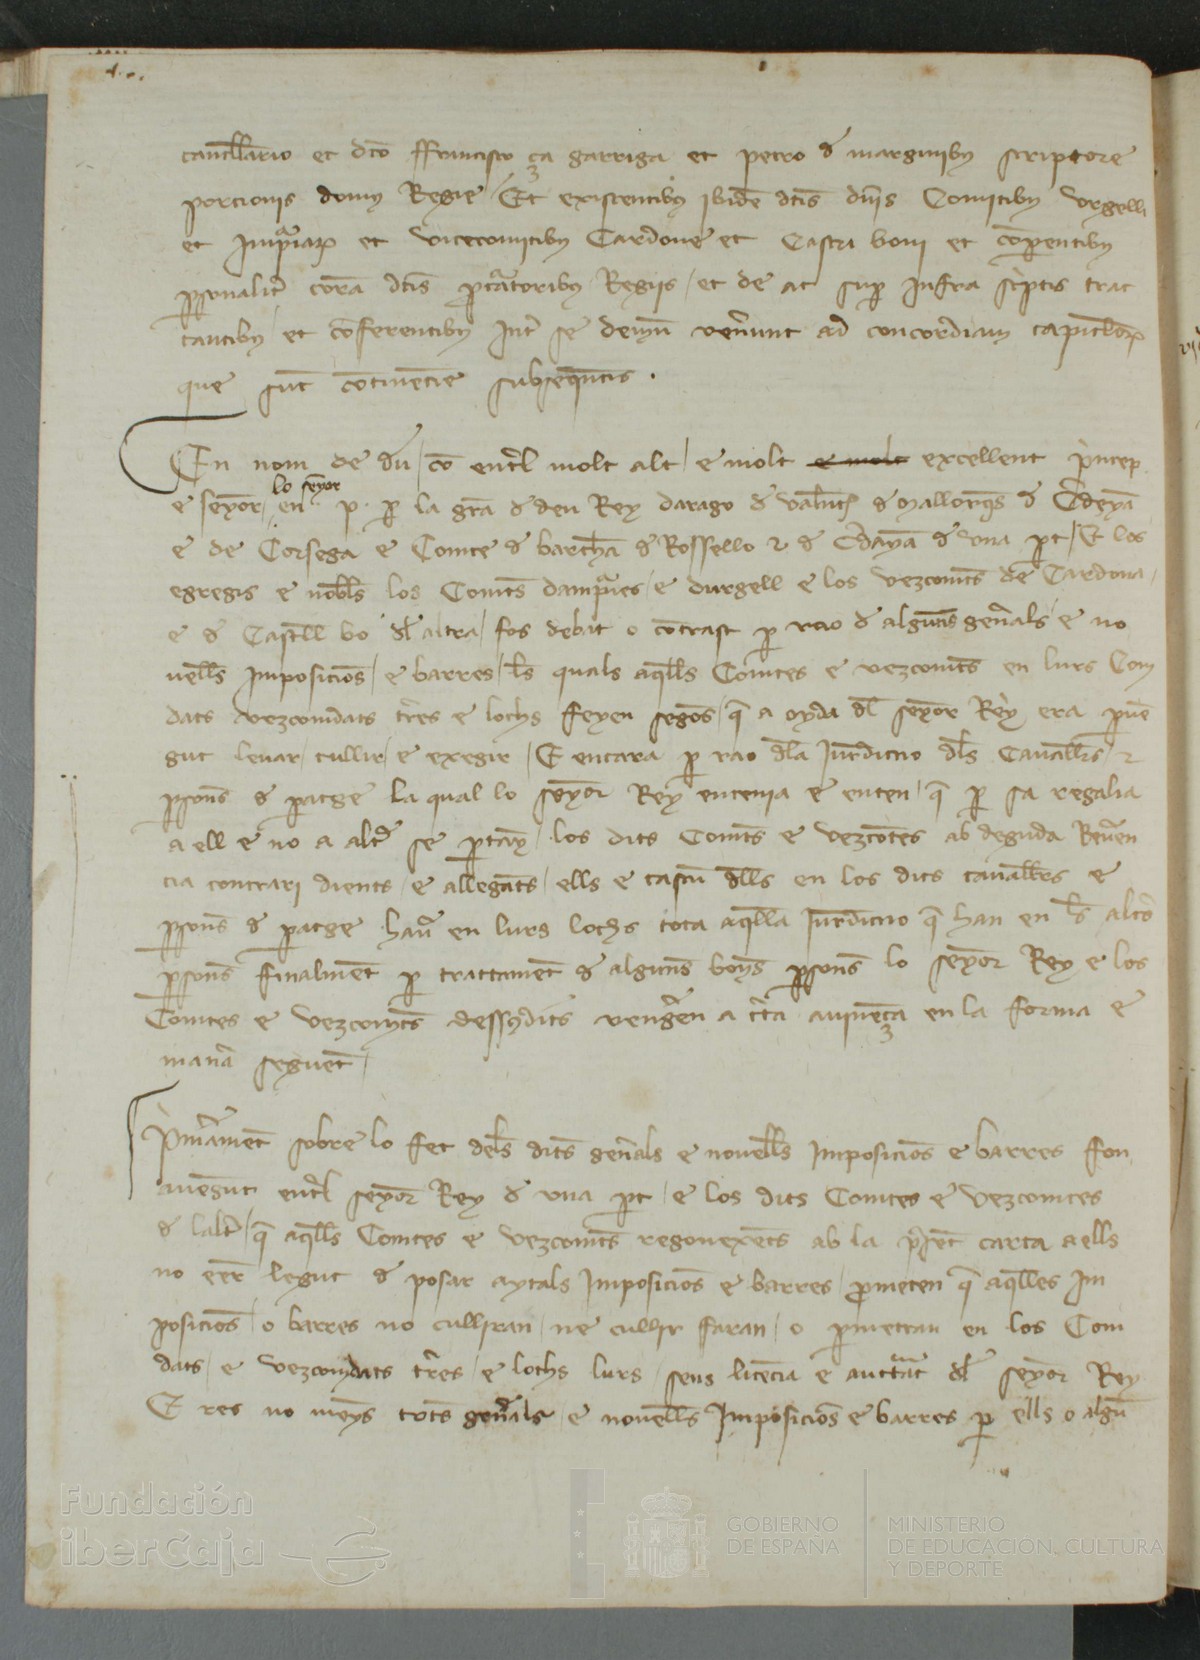 cancellario et dco ffrancisco ça garriga et petro d marginibus scriptore
porcionis domus Regie / Et existentibus ibide dcis dnis Comitibus Urgelli
et Impiar et vicecomitibus Cardone et Castri boni et coparentibus
psonalit cora dcis pcuratoribus Regiis / et de ac sup infra sciptis trac
tantibus / et coferentibus int se demu venunt ad concordiam capitlor
que sut cotinecie subsequetis .
En nom de du / co entrel molt alt / e molt e molt excellent princep
e seyor / lo seyor en . p . p la gra d deu Rey darago d Valencia d Mallorques d Cdeya
e de Corsega e Comte d barchna d Rossello e d Cdaya d una pt / E los
egregis e nobls los Comts dampuries / e durgell e los vezcomts de Cardona /
e d Castell bo dl altra / fos debat o contrast p rao d alguns genals / e no
uells imposicios / e barres / ls quals aqlls Comtes e vezcomts en lurs Com
dats vezcomdats tres e lochs ffeyen segos / q a oyda dl seyor Rey era pue
gut levar / cullir / e exegir / E encara p rao dla Jurdiccio dls Cavalls e
psons d patge la qual lo seyor Rey entenia e enten / q p sa regalia
a ell e no a altre se ptany / los dits Comts e vezcotes ab deguda Reveren
cia contrari dients / e allegats / ells e cascu dlls en los dits cavallers e
psons d patge haver en lurs lochs tota aqlla Jurdiccio q han en ls altrs
psons finalment p tractament d alguns bons psons lo seyor Rey e los
Comtes e vezcomts dessusdits vengren a cta avinença en la forma e
mana seguent /
Primament sobre lo fet dels dits genals e novells imposicios e barres ffon
avengut entrel seyor Rey d una pt / e los dits Comtes e vezcomtes
d laltra / q aqlls Comtes e vezcomts regonexets ab la pset carta a ells
no eer legut d posar aytals imposicios e barres / prometen q aqlles Im
posicios / o barres no culliran / ne cullir faran / o pmetran en los Com
dats / e vezcomdats tres / e lochs lurs / sens licecia e auctat dl seyor Rey
E res no meys tots genals / e novells Imposicios e barres p ells o algu
Fundación
iberCaja
GOBIERNO
DE ESPAÑA
MINISTERIO
DE EDUCACIÓN, CULTURA
Y DEPORTE